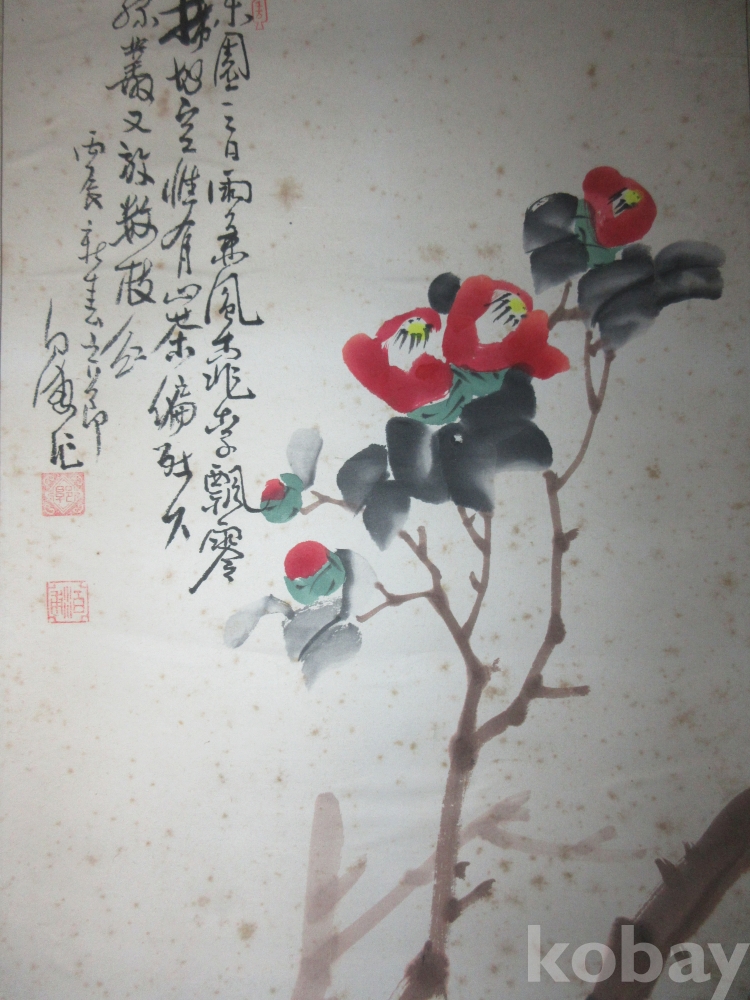 東園三日雨兼風桃李飄零
掃地空惟有山茶偏耐久
綠叢又放數枝紅
丙辰新春之節
作
kobay